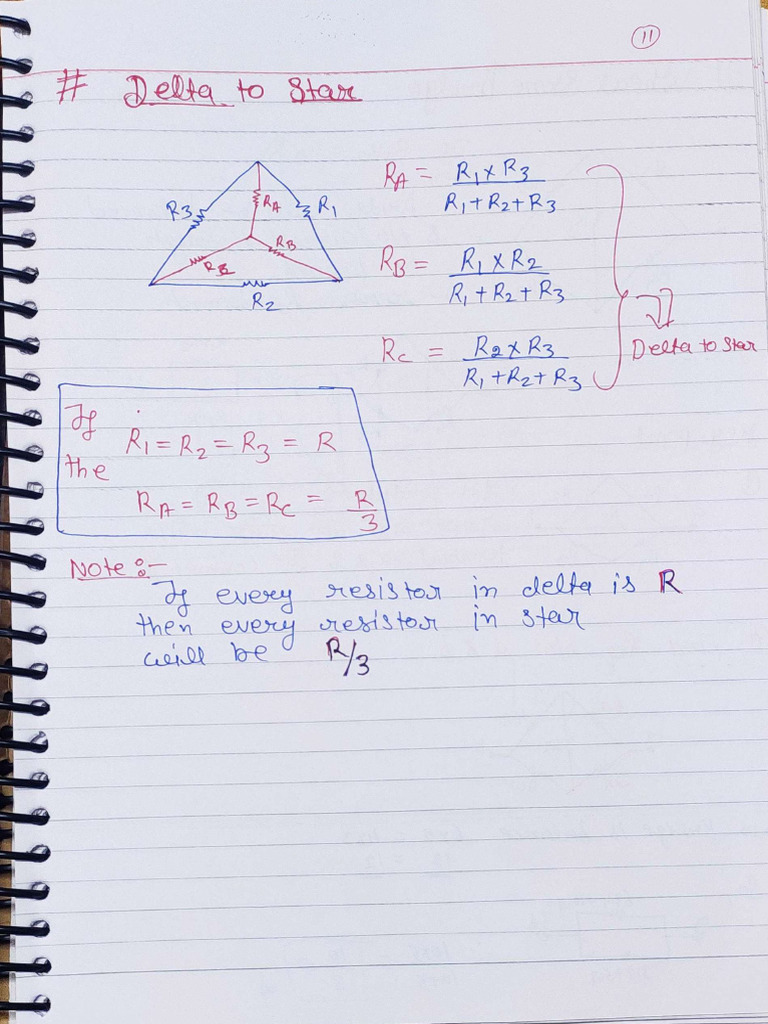 11
# Delta to Star
R3 RA R1
RB
RC
R2
RA = R1 x R3 / R1 + R2 + R3
RB = R1 x R2 / R1 + R2 + R3
RC = R2 x R3 / R1 + R2 + R3
Delta to Star
If
R1 = R2 = R3 = R
the
RA = RB = RC = R/3
Note :-
If every resistor in delta is R
then every resistor in star
will be R/3